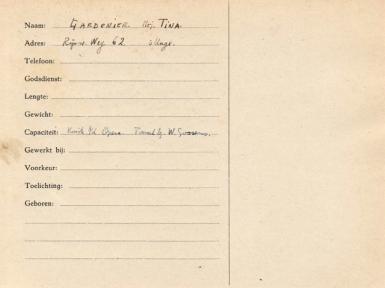 Naam: GARDENIER. Mej. TINA.
Adres: Rijsw. Weg 62
Telefoon:
Godsdienst:
Lengte:
Gewicht:
Capaciteit: Opera W. Goossens.
Gewerkt bij:
Voorkeur:
Toelichting:
Geboren: